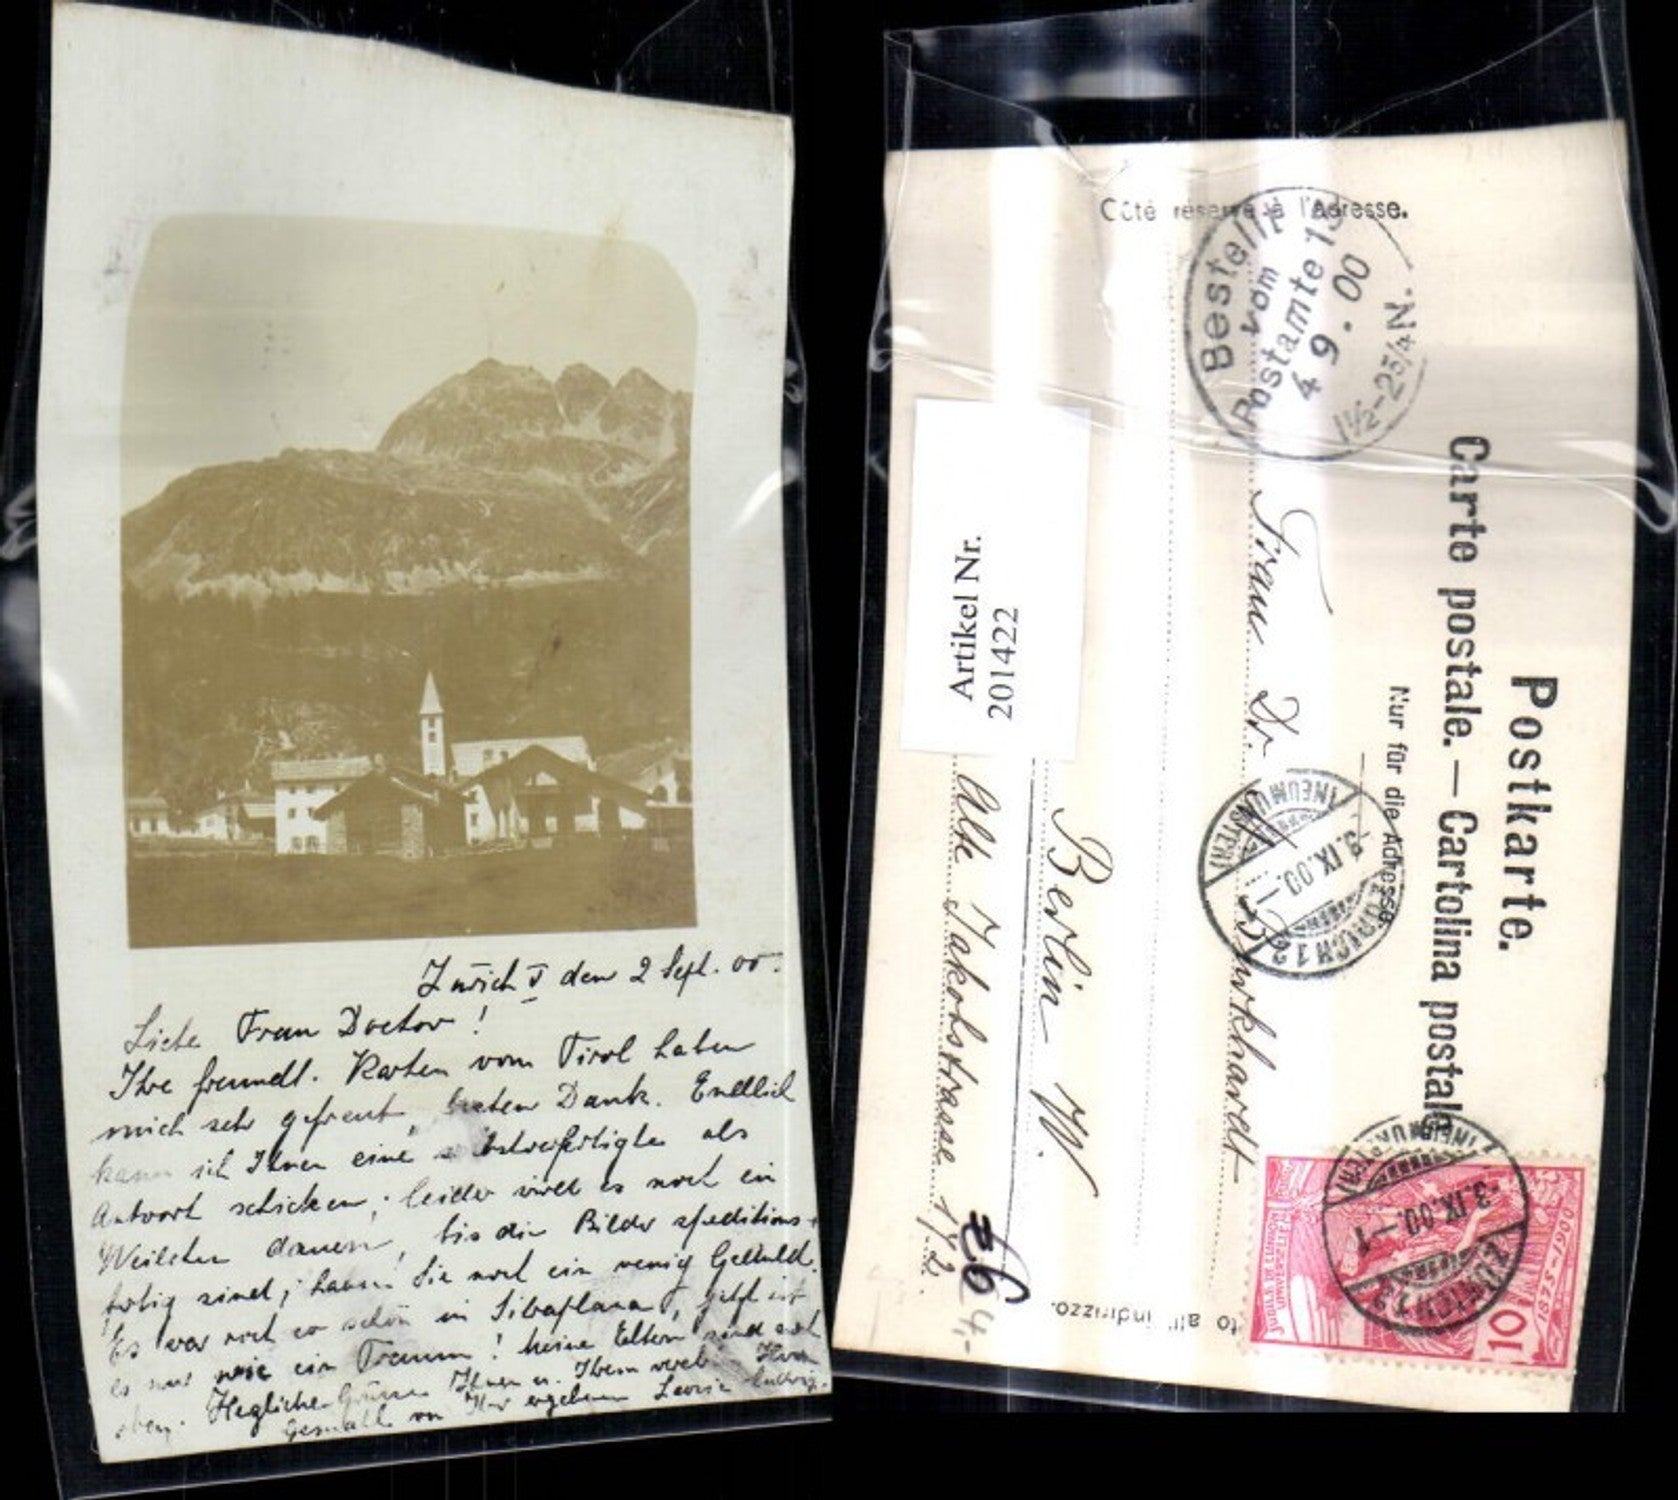 Zürich V den 2 Sept. 00.
Liebe Frau Doctor!
Ihre freundl. Karten vom Tirol haben
mich sehr gefreut, besten Dank. Endlich
kann ich Ihnen eine selbstverfertigte als
Antwort schicken; leider wird es noch ein
Weilchen dauern, bis die Bilder speditions-
fertig sind; haben Sie noch ein wenig Geduld.
Es war noch so schön in Silvaplana, jetzt ist
es nur wie ein Traum! Meine Eltern sind noch
oben. Herzliche Grüsse Ihnen u. Ihrem verehr. Herrn
Gemahl von Ihrer ergebenen
Côté réservé à l'Adresse.
Bestellt
vom
Postamte
4 9. 00
1½-2¾N.
Postkarte.
Carte postale. — Cartolina postale
Nur für die Adresse
to all' indirizzo.
Frau Dr. Burkhardt
Berlin W.
Alte Jakobstrasse 172.
Artikel Nr.
201422
ZÜRICH 12
-3.IX.00.-1
(NEUMÜNSTER)
ZÜRICH 12
-3.IX.00.-1
(NEUMÜNSTER)
JUBILÉ DE L'UNION
POSTALE UNIVERSELLE
10
1875-1900